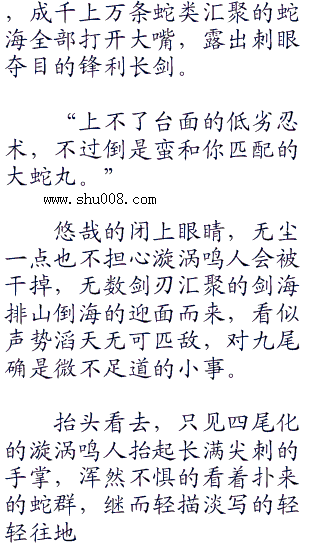 ，成千上万条蛇类汇聚的蛇
海全部打开大嘴，露出刺眼
夺目的锋利长剑。
“上不了台面的低劣忍
术，不过倒是蛮和你匹配的
大蛇丸。”
www.shu008.com
悠哉的闭上眼睛，无尘
一点也不担心漩涡鸣人会被
干掉，无数剑刃汇聚的剑海
排山倒海的迎面而来，看似
声势滔天无可匹敌，对九尾
确是微不足道的小事。
抬头看去，只见四尾化
的漩涡鸣人抬起长满尖刺的
手掌，浑然不惧的看着扑来
的蛇群，继而轻描淡写的轻
轻往地